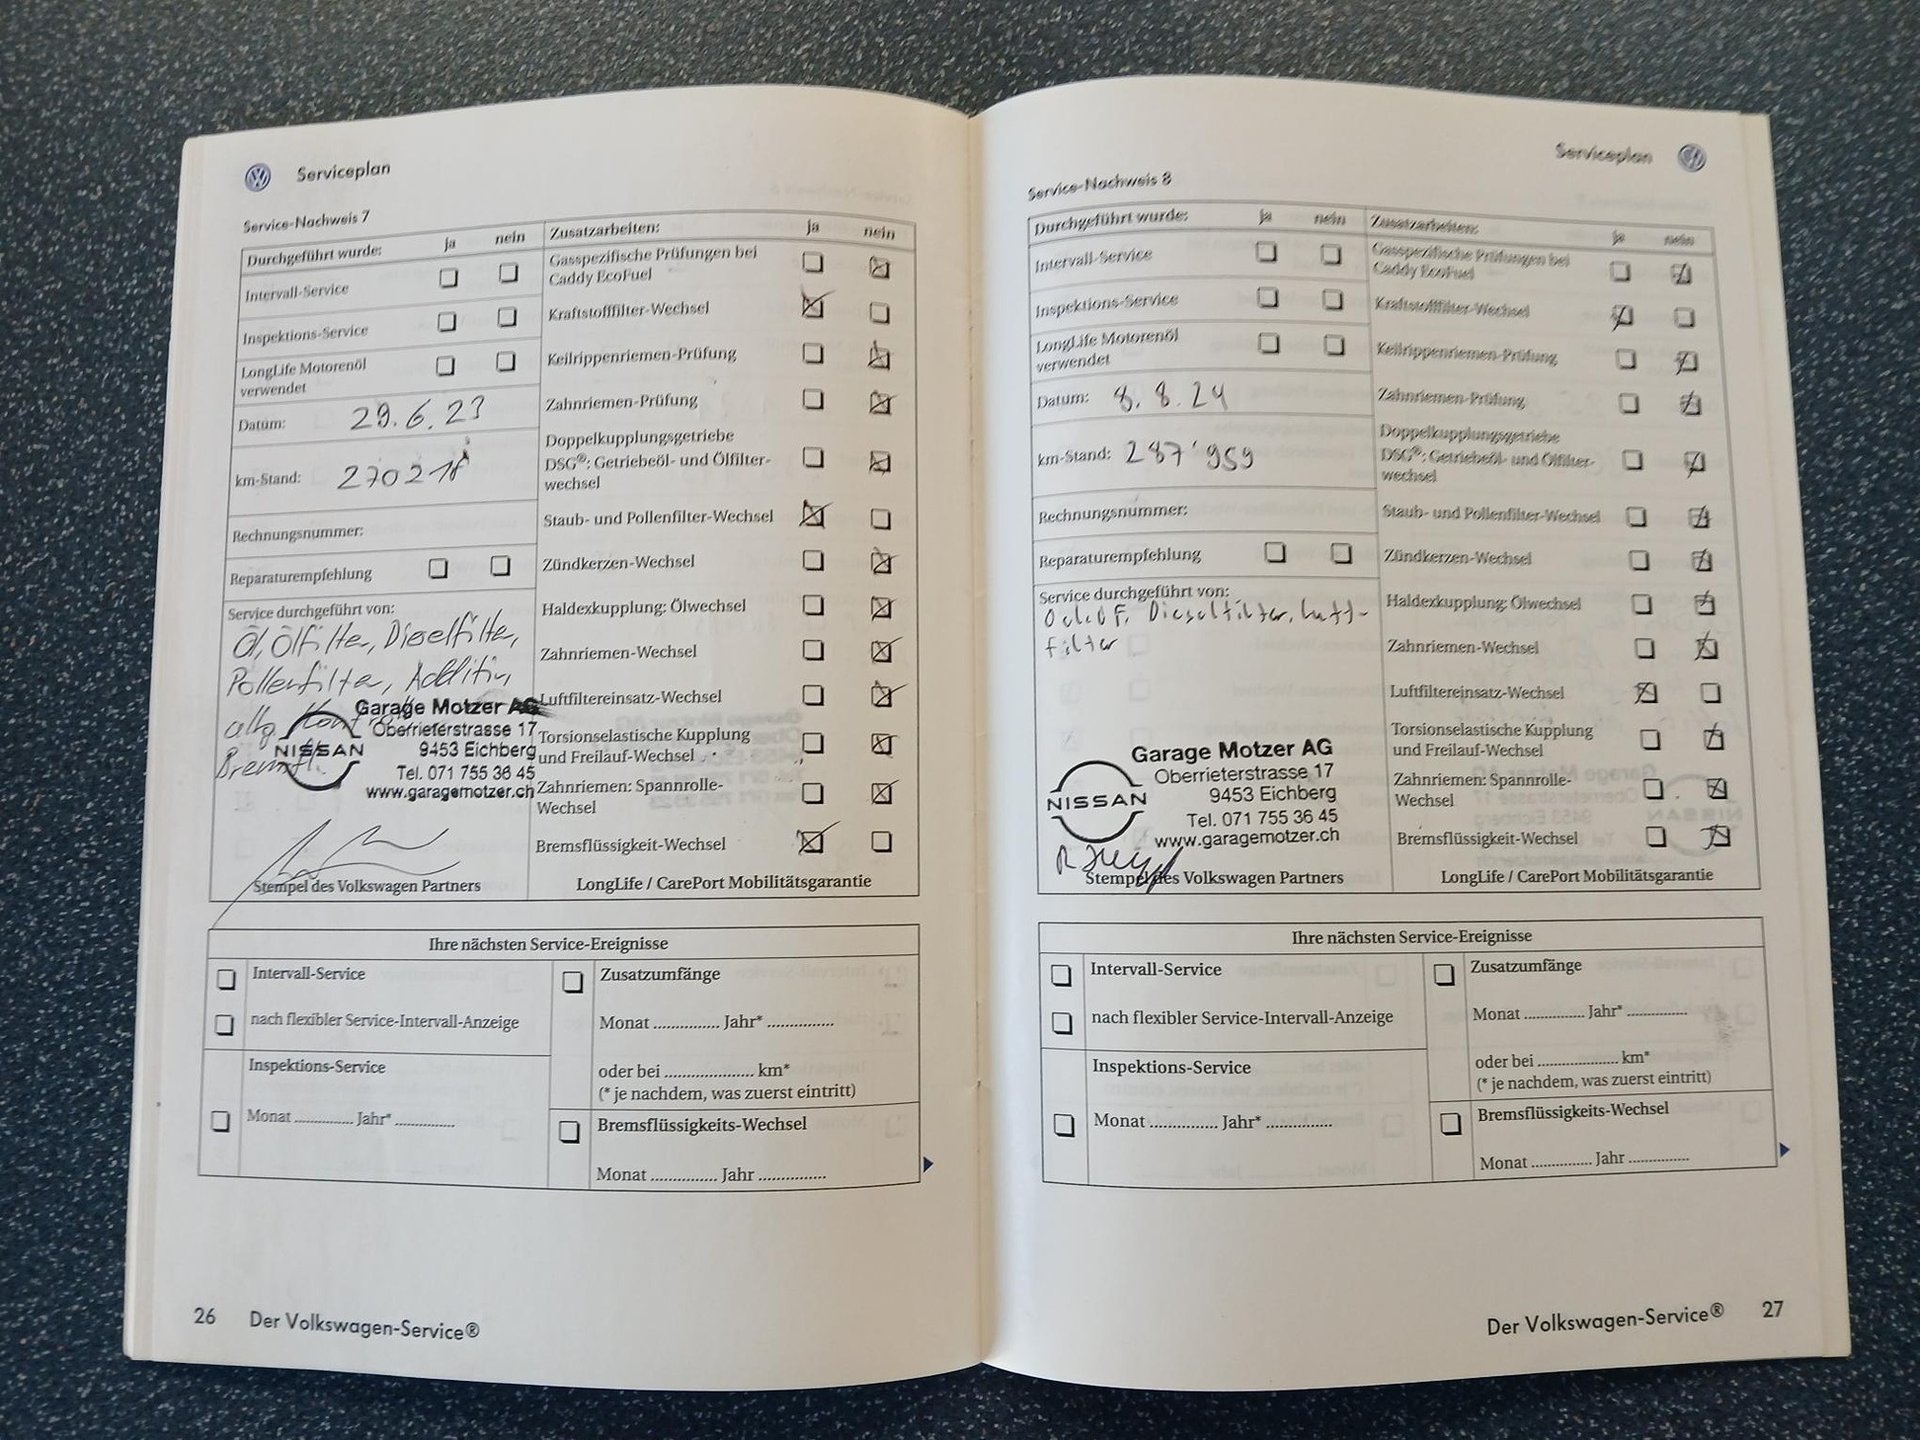 Serviceplan
Service-Nachweis 7
Durchgeführt wurde: ja nein
Intervall-Service
Inspektions-Service
LongLife Motorenöl
verwendet
Datum: 29.6.23
km-Stand: 270218
Rechnungsnummer:
Reparaturempfehlung
Service durchgeführt von:
Öl, Ölfilter, Dieselfilter,
Pollenfilter, Additiv,
allg.
Garage Motzer AG
Oberrieterstrasse 17
9453 Eichberg
NISSAN
Tel. 071 755 36 45
www.garagemotzer.ch
Stempel des Volkswagen Partners
Zusatzarbeiten: ja nein
Gasspezifische Prüfungen bei
Caddy EcoFuel
Kraftstofffilter-Wechsel
Keilrippenriemen-Prüfung
Zahnriemen-Prüfung
Doppelkupplungsgetriebe
DSG®: Getriebeöl- und Ölfilter-
wechsel
Staub- und Pollenfilter-Wechsel
Zündkerzen-Wechsel
Haldexkupplung: Ölwechsel
Zahnriemen-Wechsel
Luftfiltereinsatz-Wechsel
Torsionselastische Kupplung
und Freilauf-Wechsel
Zahnriemen: Spannrolle-
Wechsel
Bremsflüssigkeit-Wechsel
LongLife / CarePort Mobilitätsgarantie
Ihre nächsten Service-Ereignisse
Intervall-Service
nach flexibler Service-Intervall-Anzeige
Inspektions-Service
Monat ............ Jahr* ............
Zusatzumfänge
Monat ............ Jahr* ............
oder bei ................ km*
(* je nachdem, was zuerst eintritt)
Bremsflüssigkeits-Wechsel
Monat ............ Jahr ............
26 Der Volkswagen-Service®
Serviceplan
Service-Nachweis 8
Durchgeführt wurde: ja nein
Intervall-Service
Inspektions-Service
LongLife Motorenöl
verwendet
Datum: 8.8.24
km-Stand: 287'959
Rechnungsnummer:
Reparaturempfehlung
Service durchgeführt von:
Dieselfilter, Luft-
filter
Garage Motzer AG
Oberrieterstrasse 17
9453 Eichberg
NISSAN
Tel. 071 755 36 45
www.garagemotzer.ch
Stempel des Volkswagen Partners
Zusatzarbeiten: ja nein
Gasspezifische Prüfungen bei
Caddy EcoFuel
Kraftstofffilter-Wechsel
Keilrippenriemen-Prüfung
Zahnriemen-Prüfung
Doppelkupplungsgetriebe
DSG®: Getriebeöl- und Ölfilter-
wechsel
Staub- und Pollenfilter-Wechsel
Zündkerzen-Wechsel
Haldexkupplung: Ölwechsel
Zahnriemen-Wechsel
Luftfiltereinsatz-Wechsel
Torsionselastische Kupplung
und Freilauf-Wechsel
Zahnriemen: Spannrolle-
Wechsel
Bremsflüssigkeit-Wechsel
LongLife / CarePort Mobilitätsgarantie
Ihre nächsten Service-Ereignisse
Intervall-Service
nach flexibler Service-Intervall-Anzeige
Inspektions-Service
Monat ............ Jahr* ............
Zusatzumfänge
Monat ............ Jahr* ............
oder bei ................ km*
(* je nachdem, was zuerst eintritt)
Bremsflüssigkeits-Wechsel
Monat ............ Jahr ............
Der Volkswagen-Service® 27